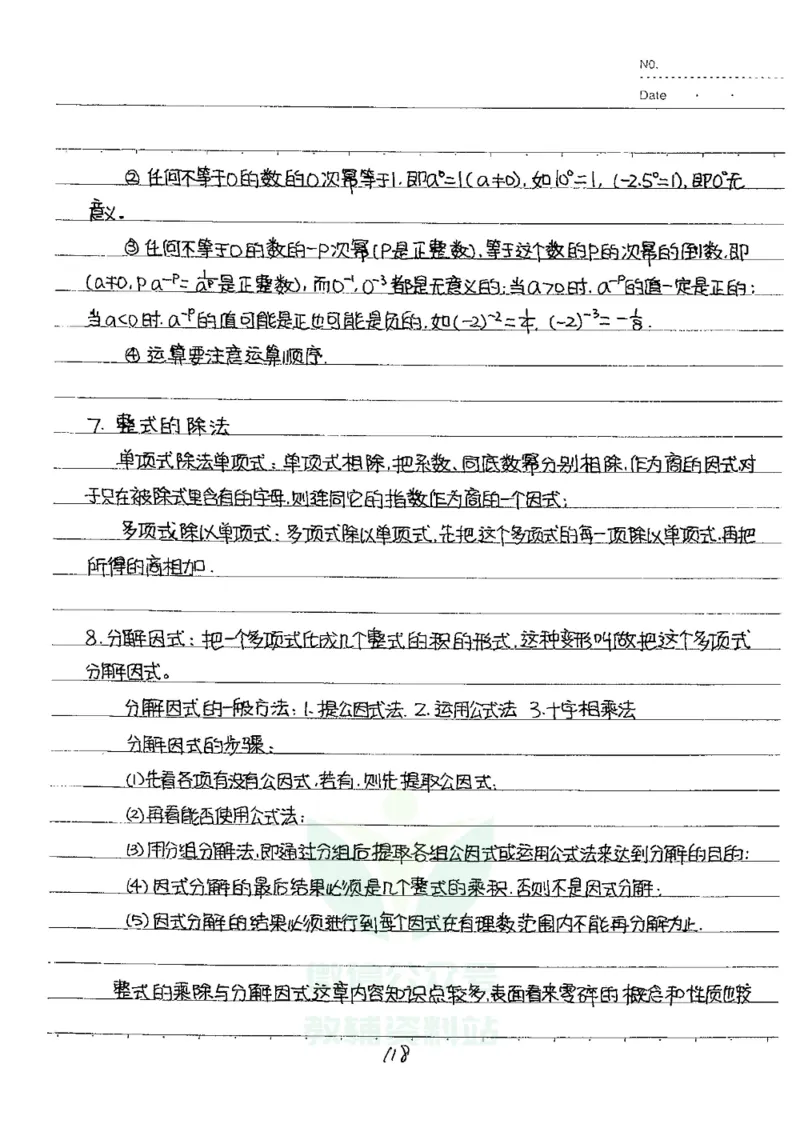 NO.
Date
② 任何不等于0的数的0次幂等于1.即a⁰=1(a≠0),如10⁰=1, (-2.5⁰=1),即0⁰无
意义。
③ 任何不等于0的数的-P次幂(P是正整数),等于这个数的P的次幂的倒数,即
(a≠0,P a⁻ᴾ=1/aᴾ是正整数),而0⁻¹,0⁻³都是无意义的;当a>0时.a⁻ᴾ的值一定是正的;
当a<0时.a⁻ᴾ的值可能是正也可能是负的,如(-2)⁻²=1/4, (-2)⁻³=-1/8.
④ 运算要注意运算顺序.
7. 整式的除法
单项式除法单项式:单项式相除,把系数、同底数幂分别相除,作为商的因式对
于只在被除式里含有的字母,则连同它的指数作为商的一个因式;
多项式除以单项式:多项式除以单项式,先把这个多项式的每一项除以单项式.再把
所得的商相加.
8.分解因式:把一个多项式化成几个整式的积的形式,这种变形叫做把这个多项式
分解因式。
分解因式的一般方法:1.提公因式法. 2.运用公式法 3.十字相乘法
分解因式的步骤:
(1)先看各项有没有公因式,若有.则先提取公因式;
(2)再看能否使用公式法;
(3)用分组分解法,即通过分组后提取各组公因式或运用公式法来达到分解的目的;
(4)因式分解的最后结果必须是几个整式的乘积.否则不是因式分解;
(5)因式分解的结果必须进行到每个因式在有理数范围内不能再分解为止.
微信公众号
整式的乘除与分解因式这章内容知识点较多,表面看来零碎的概念和性质也较
教辅资料站
118